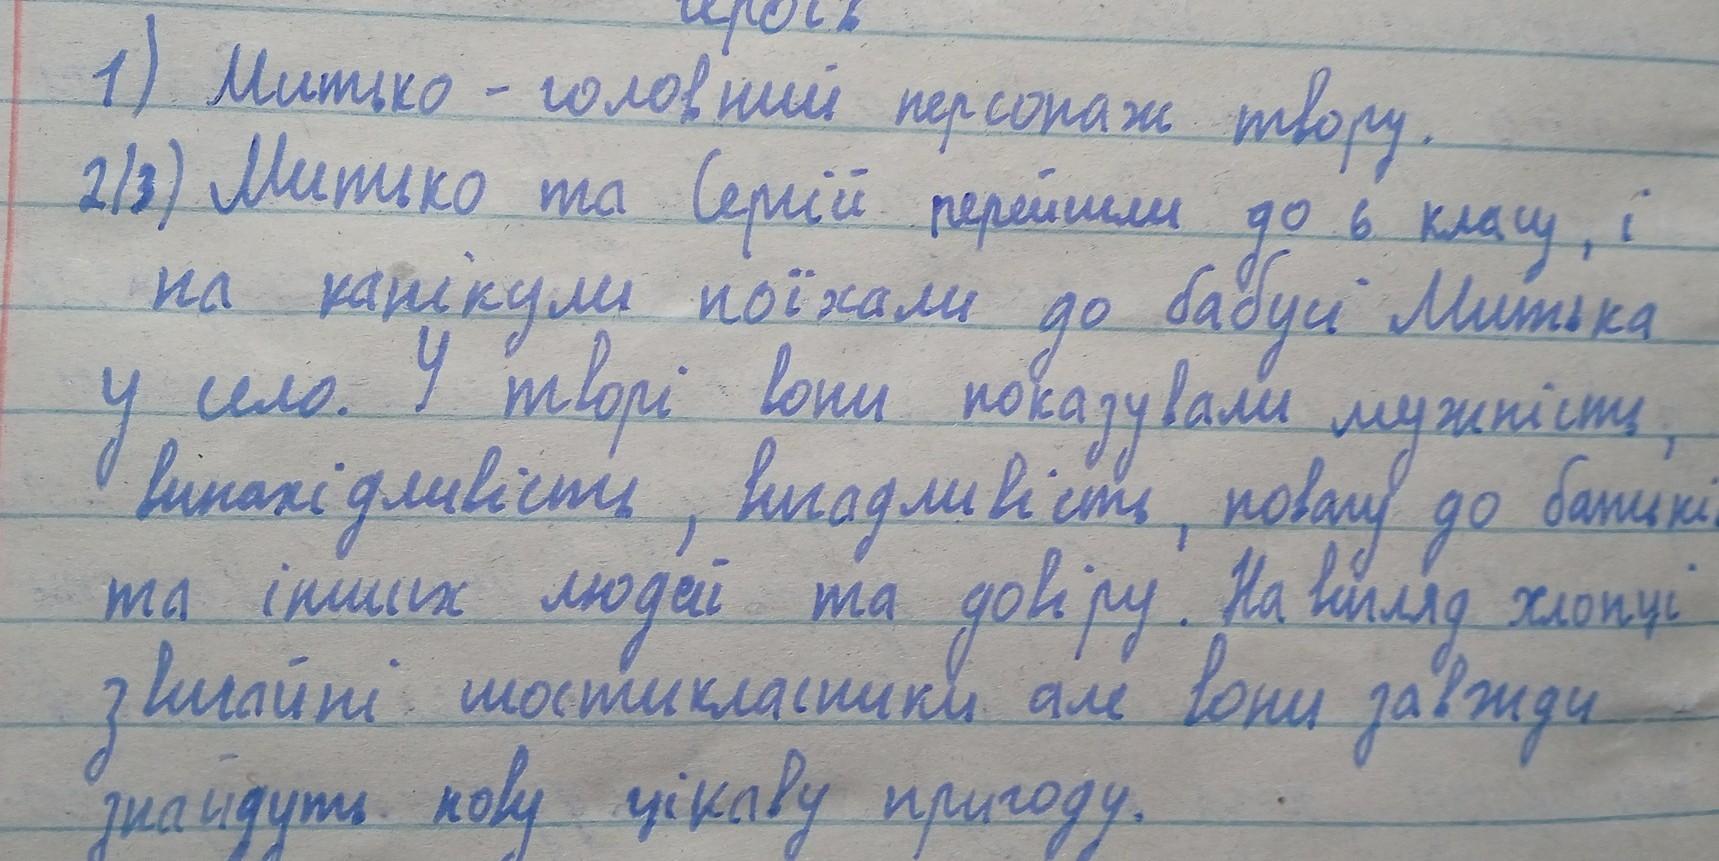 героїв
1) Митько - головний персонаж твору.
2/3) Митько та Сергій перейшли до 6 класу, і
на канікули поїхали до бабусі Митька
у село. У творі вони показували мужність,
винахідливість, вигадливість, повагу до батьків
та інших людей та довіру. На вигляд хлопці
звичайні шостикласники але вони завжди
знайдуть нову цікаву пригоду.